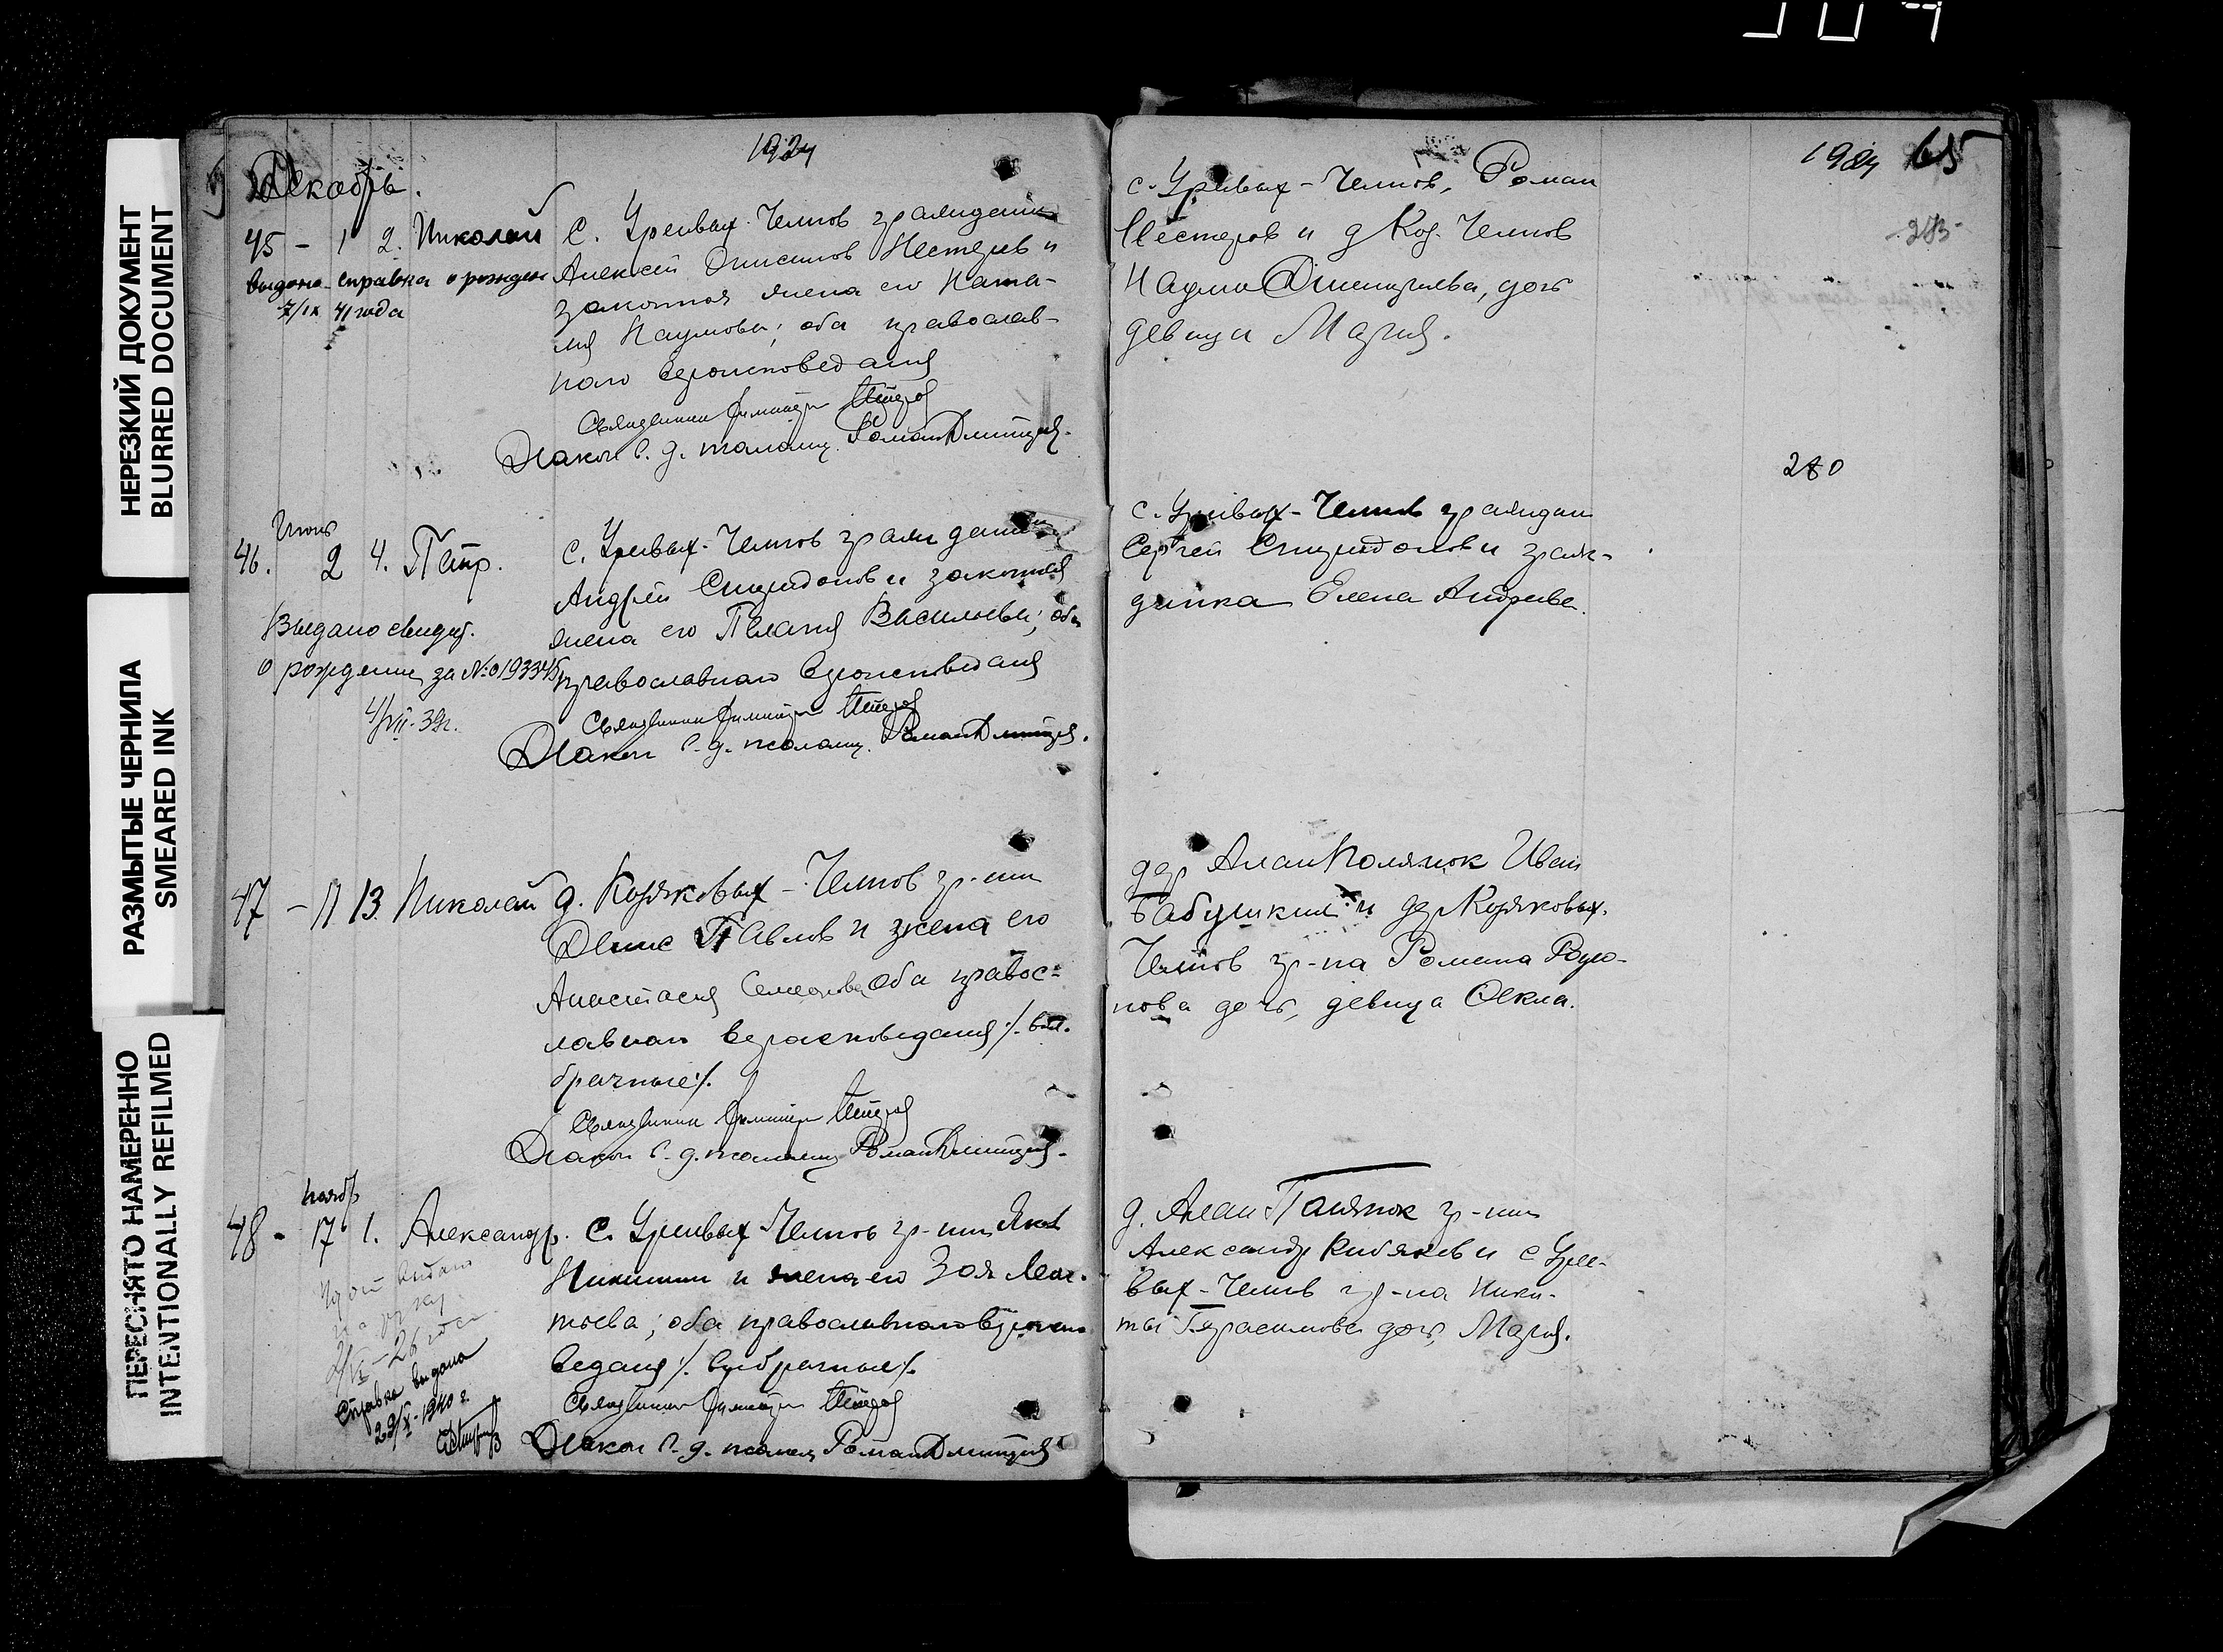 НЕРЕЗКИЙ ДОКУМЕНТ
BLURRED DOCUMENT
РАЗМЫТЫЕ ЧЕРНИЛА
SMEARED INK
ПЕРЕСНЯТО НАМЕРЕННО
INTENTIONALLY REFILMED
1924
Декабрь.
45 - 1 2. Николай
выдана справка о рожден
7/IX 41 года
с. Уреевых-Челнов гражданин
Алексей Онисимов Нестеров и
законная жена его Ната-
лия Наумова; оба православ-
наго вероисповедания
Священник Димитрий
Диакон с. д. псаломщ. Роман Дмитриев.
Июнь
46. 2 4. Петр.
Выдано свидет.
о рождении за № 019334
4/VII-39г.
с. Уреевых-Челнов гражданин
Андрей Спиридонов и законная
жена его Пелагия Васильева; оба
православнаго вероисповедания
Священник Димитрий
Диакон с. д. псаломщ. Роман Дмитриев.
47 - 11 13. Николай
д. Коряковых-Челнов гр-нин
Денис Павлов и жена его
Анастасия Семенова оба правос-
лавнаго вероисповедания /.
брачные/.
Священник Димитрий
Диакон с. д. псаломщ Роман Дмитриев.
Ноябр
48 - 17 1. Александр.
26 года
Справка выдана
29/X-1940 г.
С. Уреевых-Челнов гр-нин Яков
Никитин и жена его Зоя Леон-
тьева; оба православнаго вероиспо
ведания /. внебрачные/.
Священник Димитрий
Диакон с. д. псаломщ Роман Дмитриев
1924 65
283
с. Уреевых-Челнов, Роман
Нестеров и д Кор. Челнов
Наума Димитриева, дочь
девица Мария.
280
с. Уреевых-Челнов граждан
Сергей Спиридонов и граж-
данка Елена Андреева.
дер Алан Полянок Иван
Бабушкин и дер Коряковых.
Челнов гр-на Романа
нова дочь, девица Фекла.
д. Алан Полянок гр-нин
Александр Кибяков и с Урее-
вых-Челнов гр-на Ники-
ты Герасимова дочь, Мария.